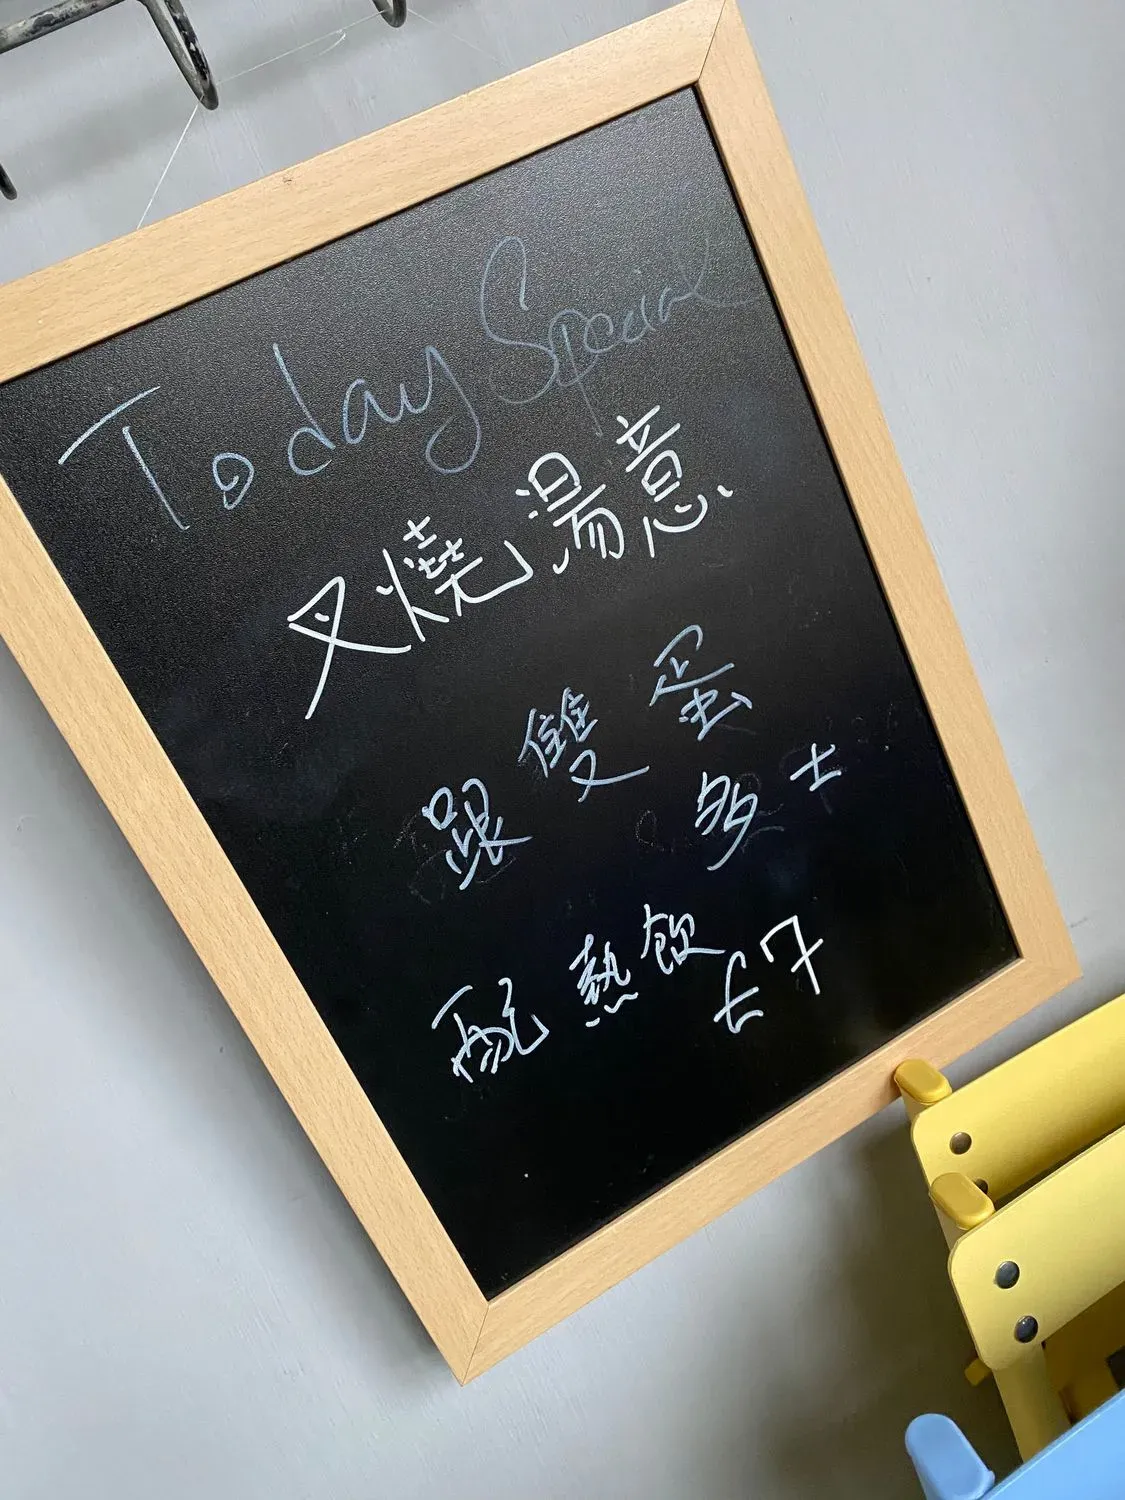 Today Special
叉燒湯意
跟雙蛋
多士
配熱飲
£7